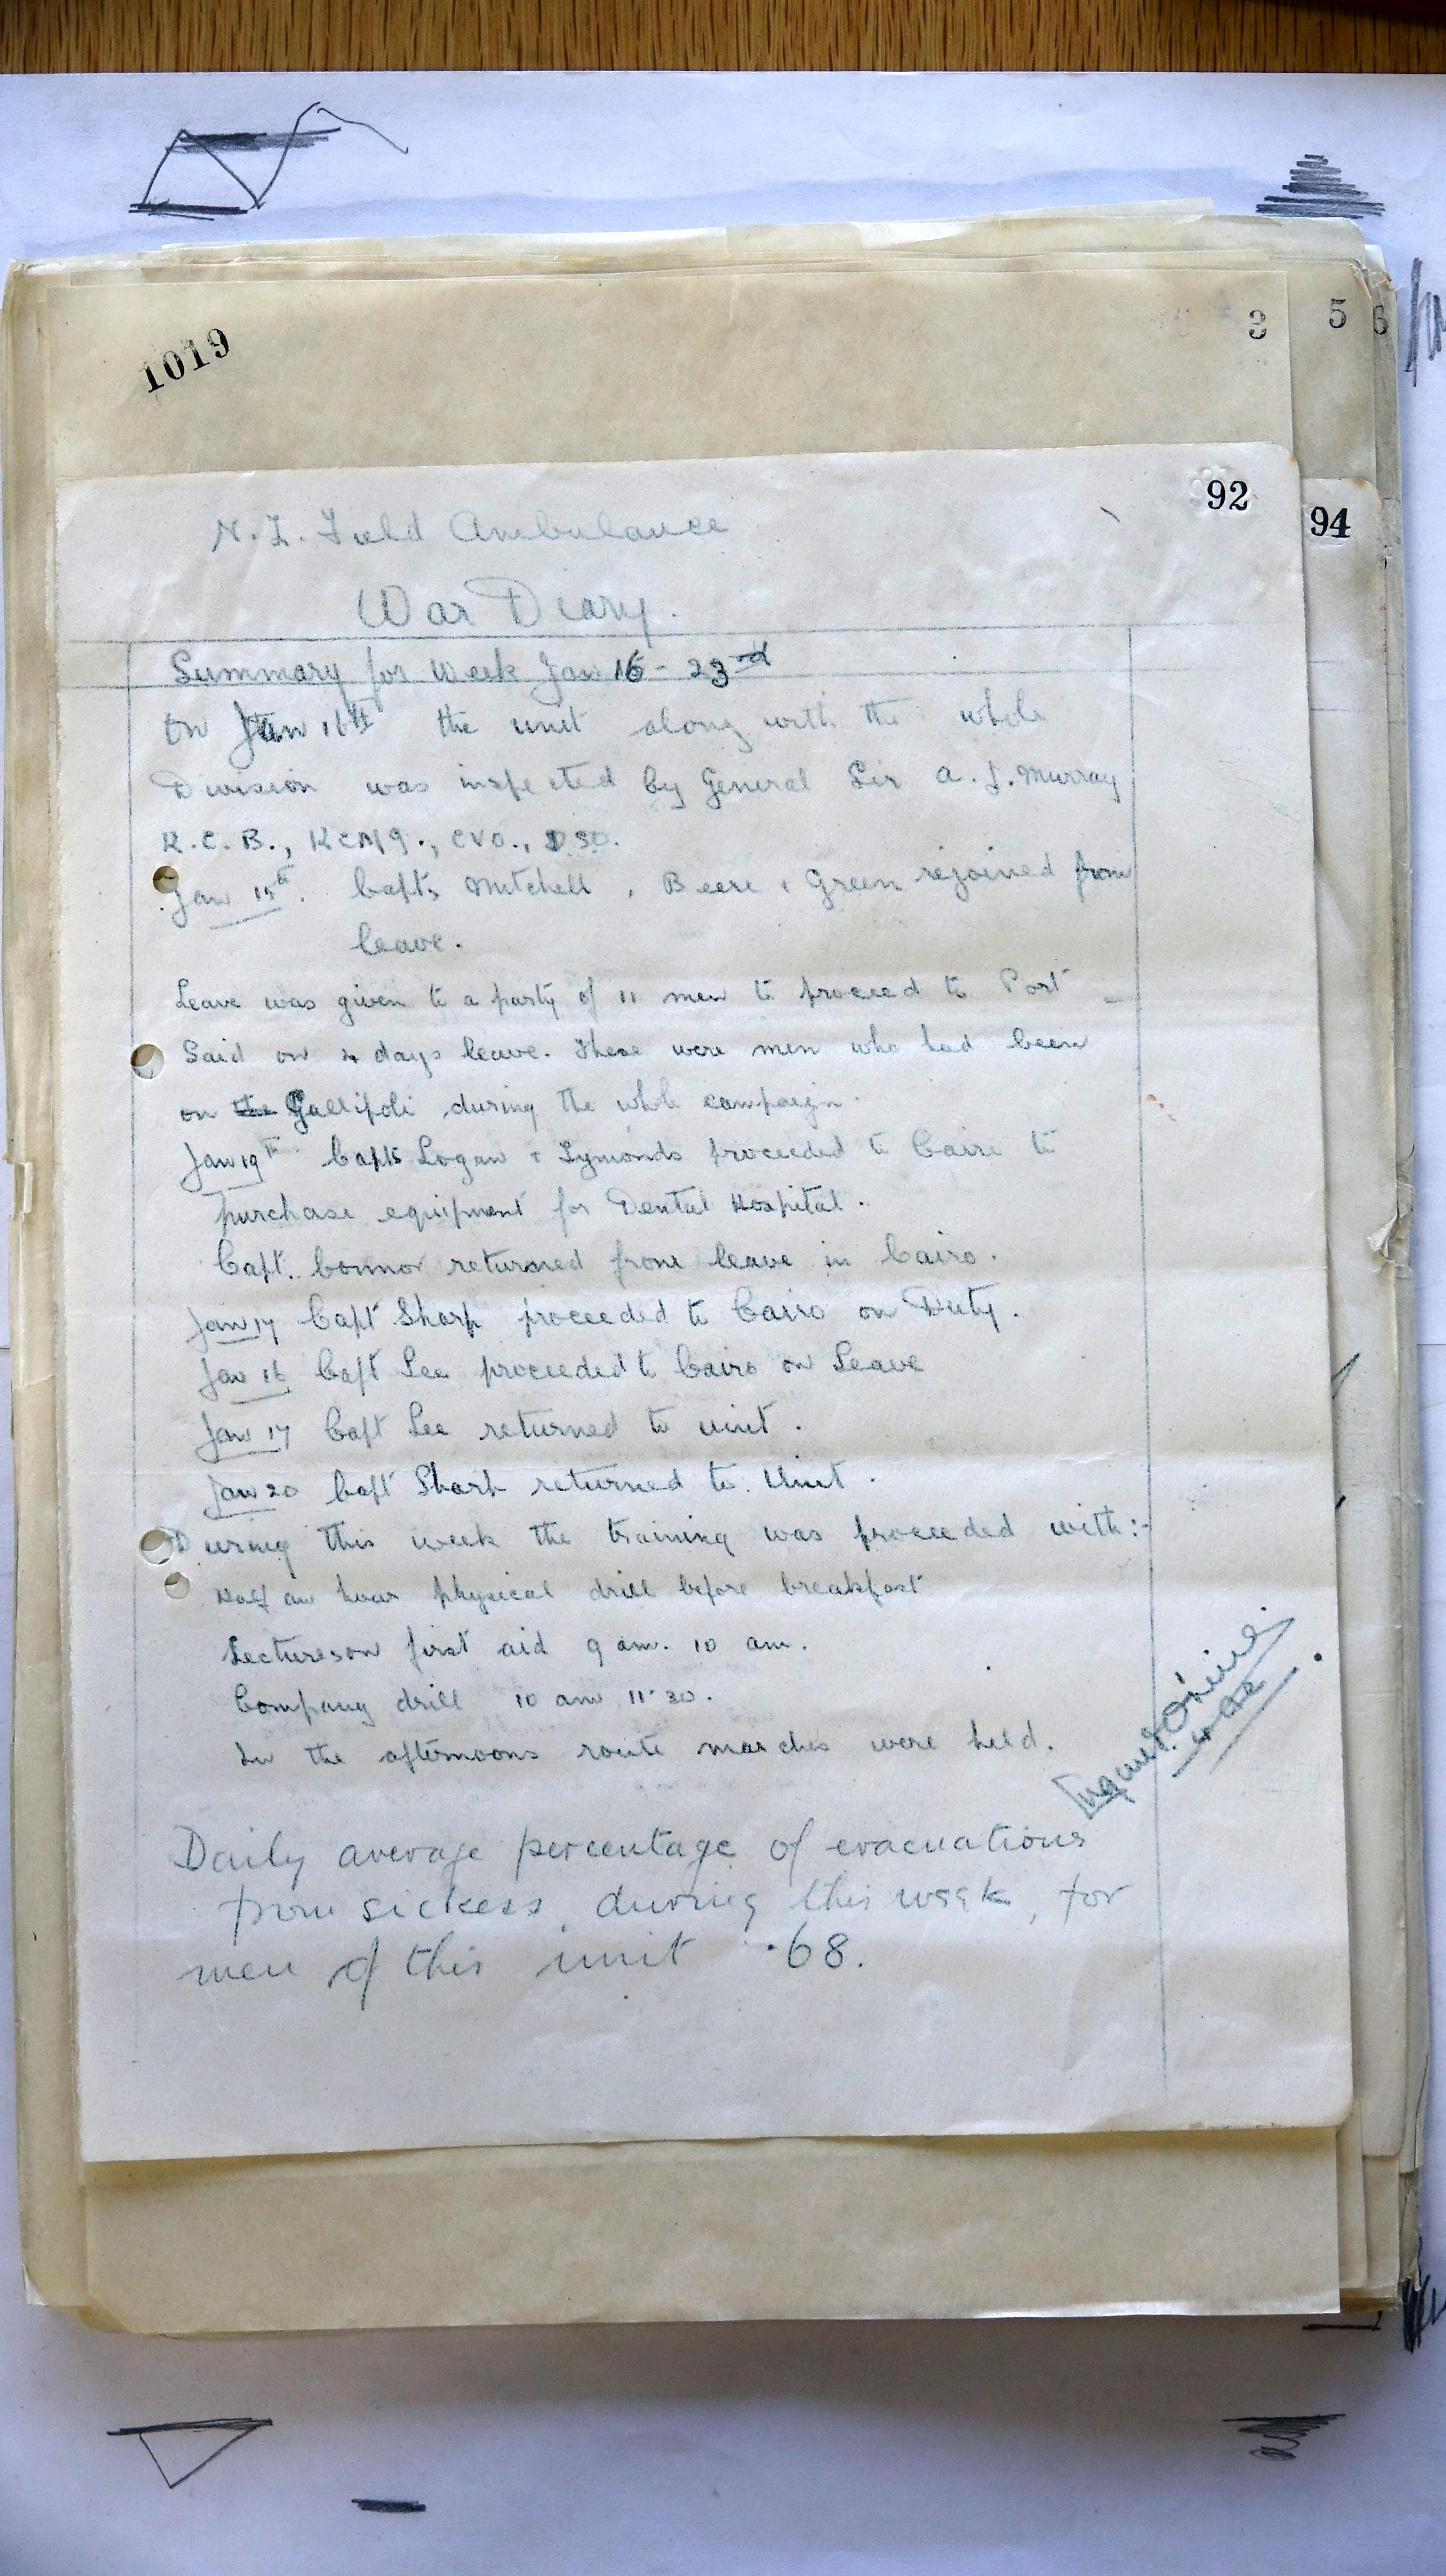 1019
3 5 6
92
94
N.Z. Field Ambulance
War Diary.
Summary for Week Jan 16 - 23rd
On Jan 16th the unit along with the whole
Division was inspected by General Sir A. J. Murray
K.C.B., KCMG., CVO., DSO.
Jan 15th. Capts Mitchell, Beere & Green rejoined from
leave.
Leave was given to a party of 11 men to proceed to Port
Said on 4 days leave. These were men who had been
on the Gallipoli during the whole campaign.
Jan 19th Capts Logan & Symonds proceeded to Cairo to
purchase equipment for Dental Hospital.
Capt. Connor returned from leave in Cairo.
Jan 17 Capt Sharp proceeded to Cairo on Duty.
Jan 16 Capt Lee proceeded to Cairo on Leave
Jan 17 Capt Lee returned to unit.
Jan 20 Capt Sharp returned to Unit.
During this week the training was proceeded with:-
Half an hour physical drill before breakfast
Lectures on first aid 9 am. 10 am.
Company drill 10 am 11.30.
In the afternoons route marches were held.
Daily average percentage of evacuations
from sickess, during this week, for
men of this unit .68.